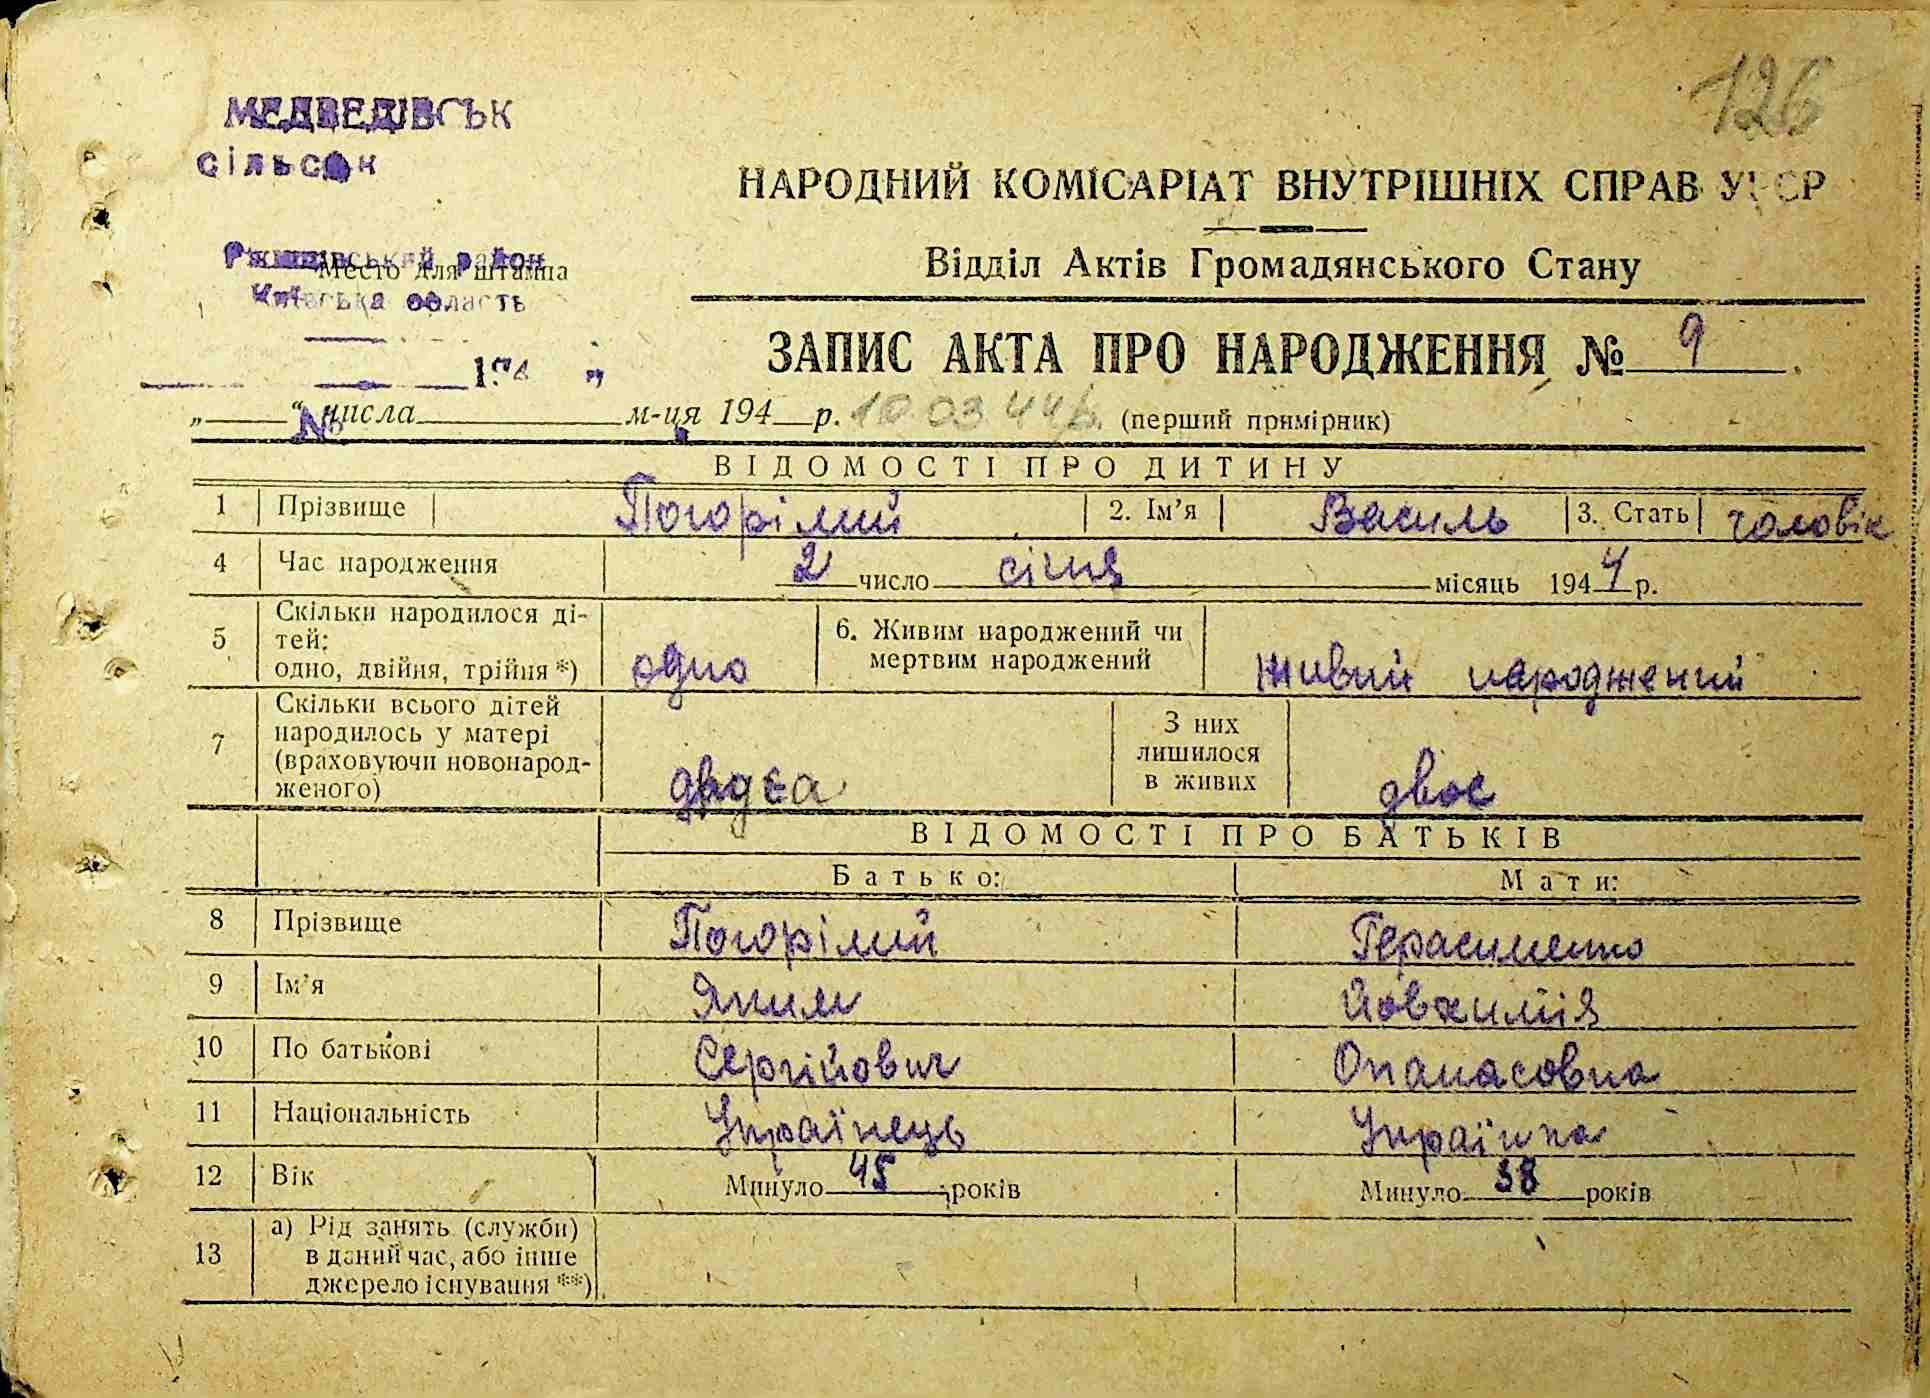 126
МЕДВЕДІВСЬК
сільсок
Ржищівський район
Место для штампа
Київська область
НАРОДНИЙ КОМІСАРІАТ ВНУТРІШНІХ СПРАВ УРСР
Відділ Актів Громадянського Стану
ЗАПИС АКТА ПРО НАРОДЖЕННЯ № 9
194
№
„ “ числа м-ця 194 р. 10.03.44р. (перший примірник)
ВІДОМОСТІ ПРО ДИТИНУ
1 Прізвище Погорілий 2. Ім’я Василь 3. Стать чоловік
4 Час народження 2 число січня місяць 1944 р.
5 Скільки народилося ді-
тей:
одно, двійня, трійня *) одно 6. Живим народжений чи
мертвим народжений живий народжений
7 Скільки всього дітей
народилось у матері
(враховуючи новонарод-
женого)
З них
лишилося
в живих двоє
ВІДОМОСТІ ПРО БАТЬКІВ
Батько: Мати:
8 Прізвище Погорілий Герасименко
9 Ім’я Яким Йовхимія
10 По батькові Сергійович Опанасовна
11 Національність Українець Українка
12 Вік Минуло 45 років Минуло 38 років
13 а) Рід занять (служби)
в даний час, або інше
джерело існування **)